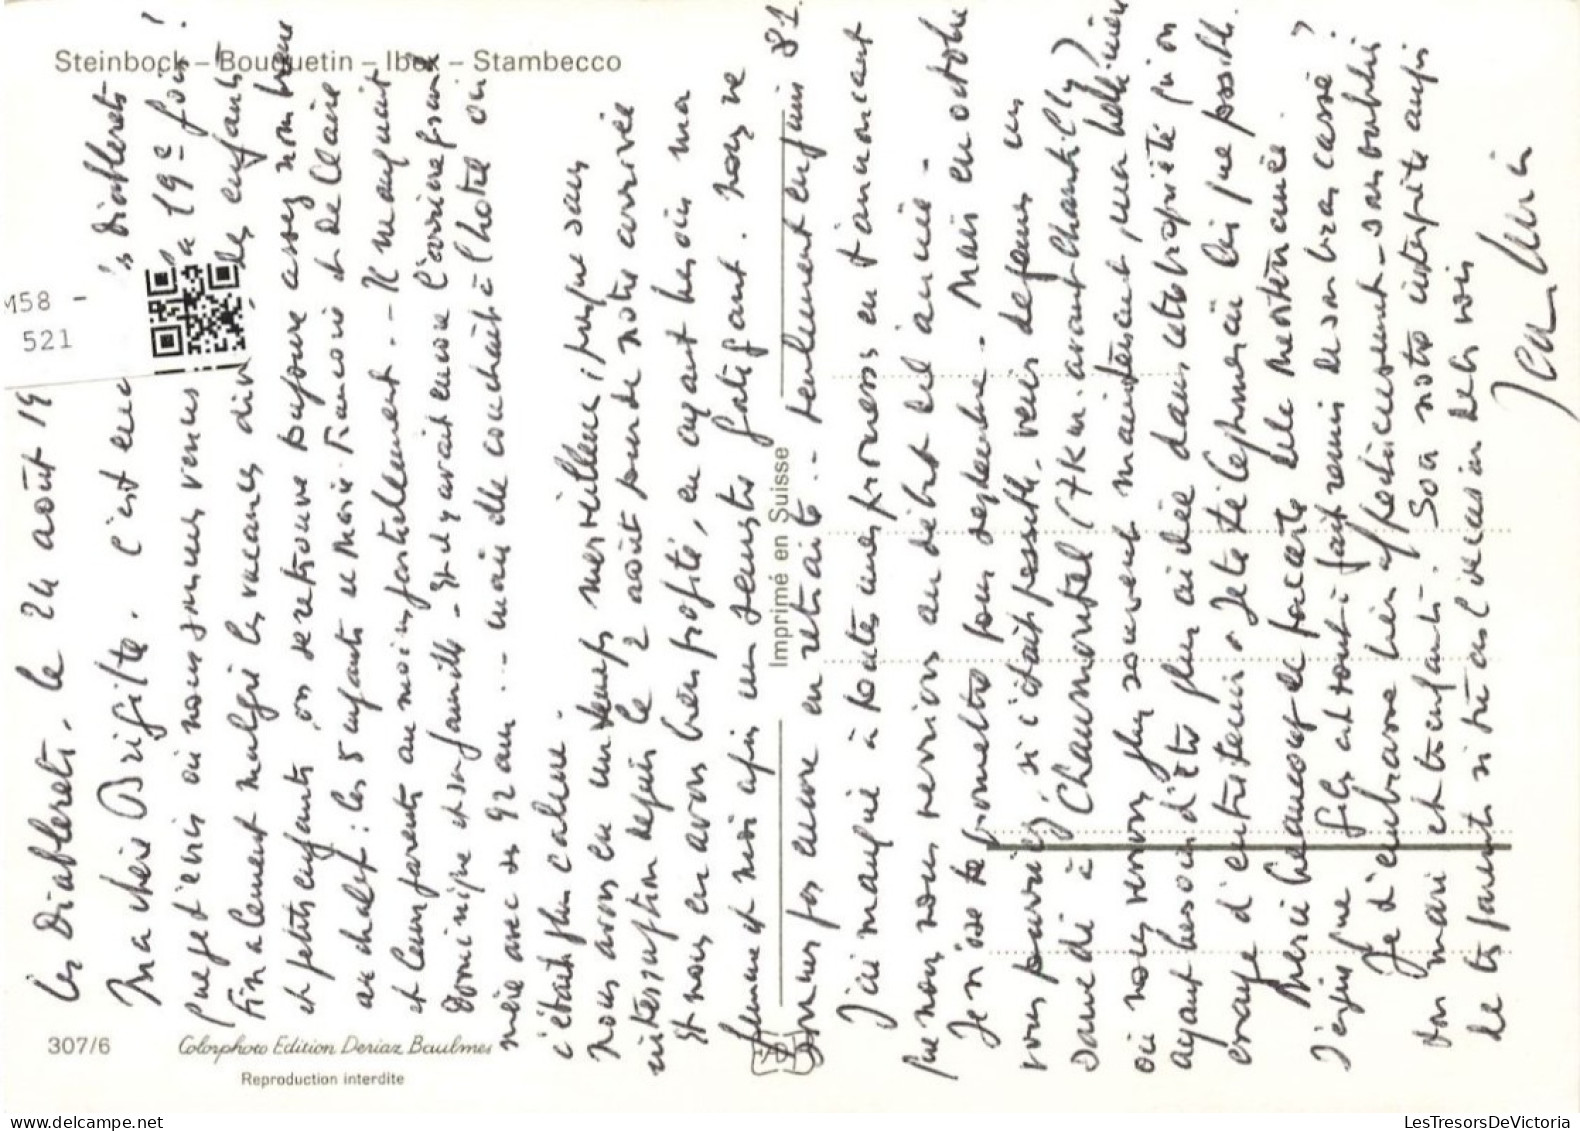 Steinbock – Bouquetin – Ibex – Stambecco
M58 -
521
Les Diablerets, le 24 août 19
Ma chère Brigitte. C'est enc Diablerets
que je t'écris où nous sommes venus 19e fois !
Finalement malgré les vacances des enfants
et petits enfants, on se retrouve toujours assez nombreux
au chalet : les 5 enfants de Marie-Françoise et de Claire
et leurs parents au moins partiellement -- Il manquait
Dominique et sa famille - Et il y avait encore l'arrière grand
mère avec ses 92 ans ... mais elle couchait à l'hôtel où
c'était plus calme.
Nous avons eu un temps merveilleux, presque sans
interruption depuis le 2 août jour de notre arrivée
Et nous en avons bien profité, en ayant besoin ma
femme et moi après un trimestre fatigant. Nous ne
sommes pas encore en retraite -- seulement en juin 81.
J'ai manqué à toutes mes promesses en t'annonçant
que nous nous verrions au début de l'année -
Je n'ose te promettre pour septembre - Mais en octobre
vous pourriez, si c'était possible, venir déjeuner un
samedi à Chaumontel (7 km. avant Chantilly)
où nous venons plus souvent maintenant, ma belle-mère
ayant besoin d'être plus aidée dans cette propriété qu'on
essaye d'entretenir. Je te téléphonerai dès que possible.
Merci beaucoup de ta carte de
J'espère que fils est tout à fait remis de son bras cassé ?
Je t'embrasse bien affectueusement - sans oublier
ton mari et tes enfants. Sois notre interprète auprès
de tes parents si tu as l'occasion de les voir
Jean
Imprimé en Suisse
307/6
Colorphoto Edition Deriaz Baulmes
Reproduction interdite
LesTresorsDeVictoria
delcampe.net